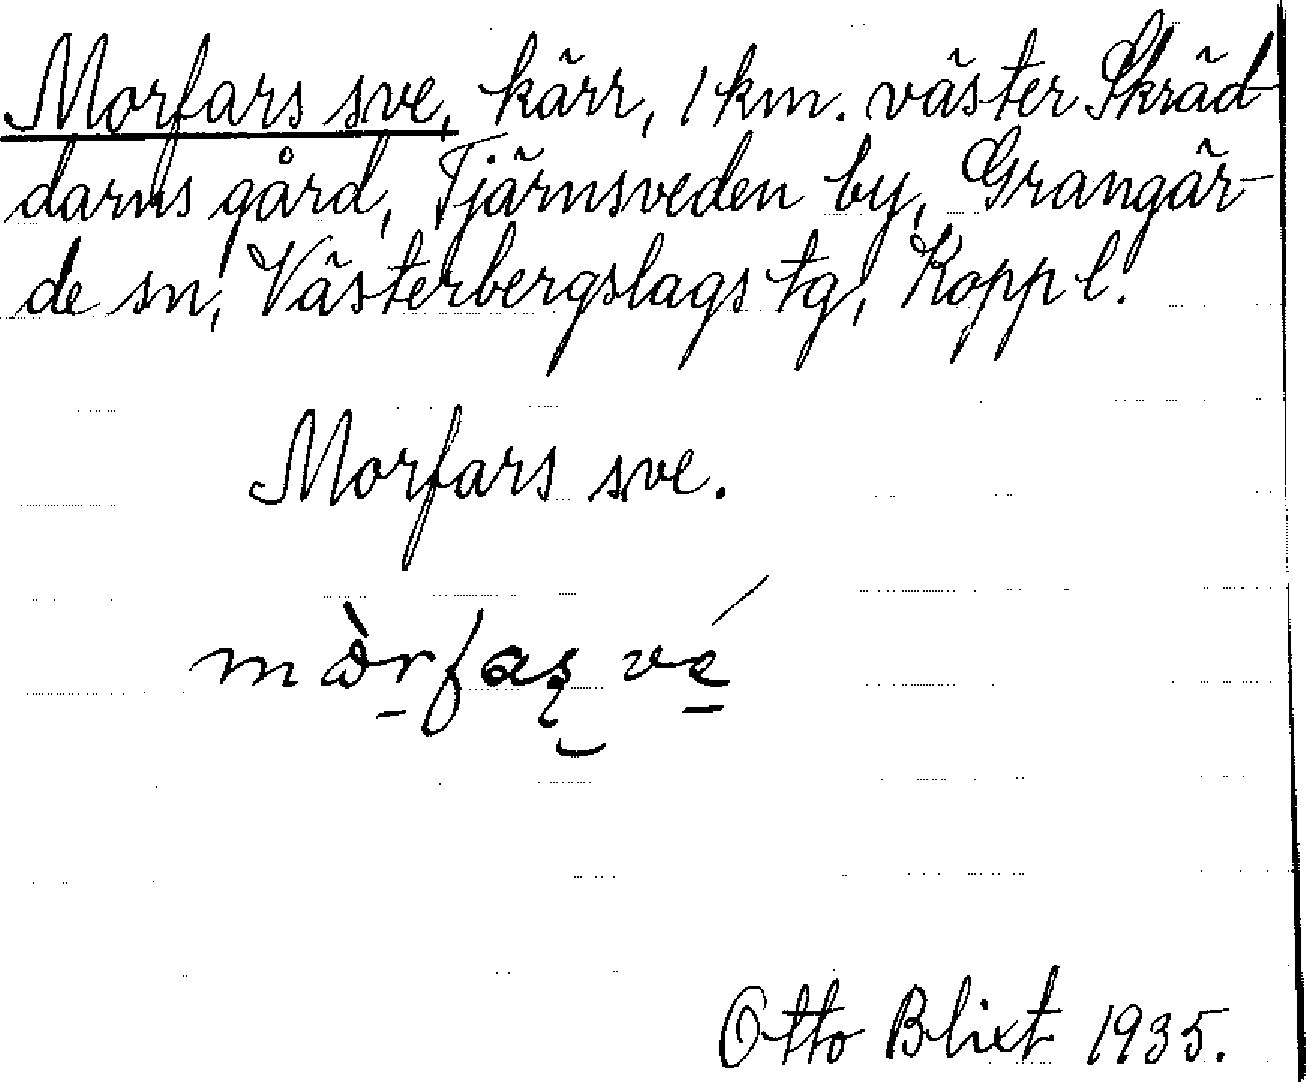 Morfars sve, kärr, 1 km. väster Skräd-
darns gård, Tjärnsveden by, Grangär-
de sn, Västerbergslags tg, Kopp l.
Morfars sve.
mòrfaʂ vé
Otto Blixt 1935.